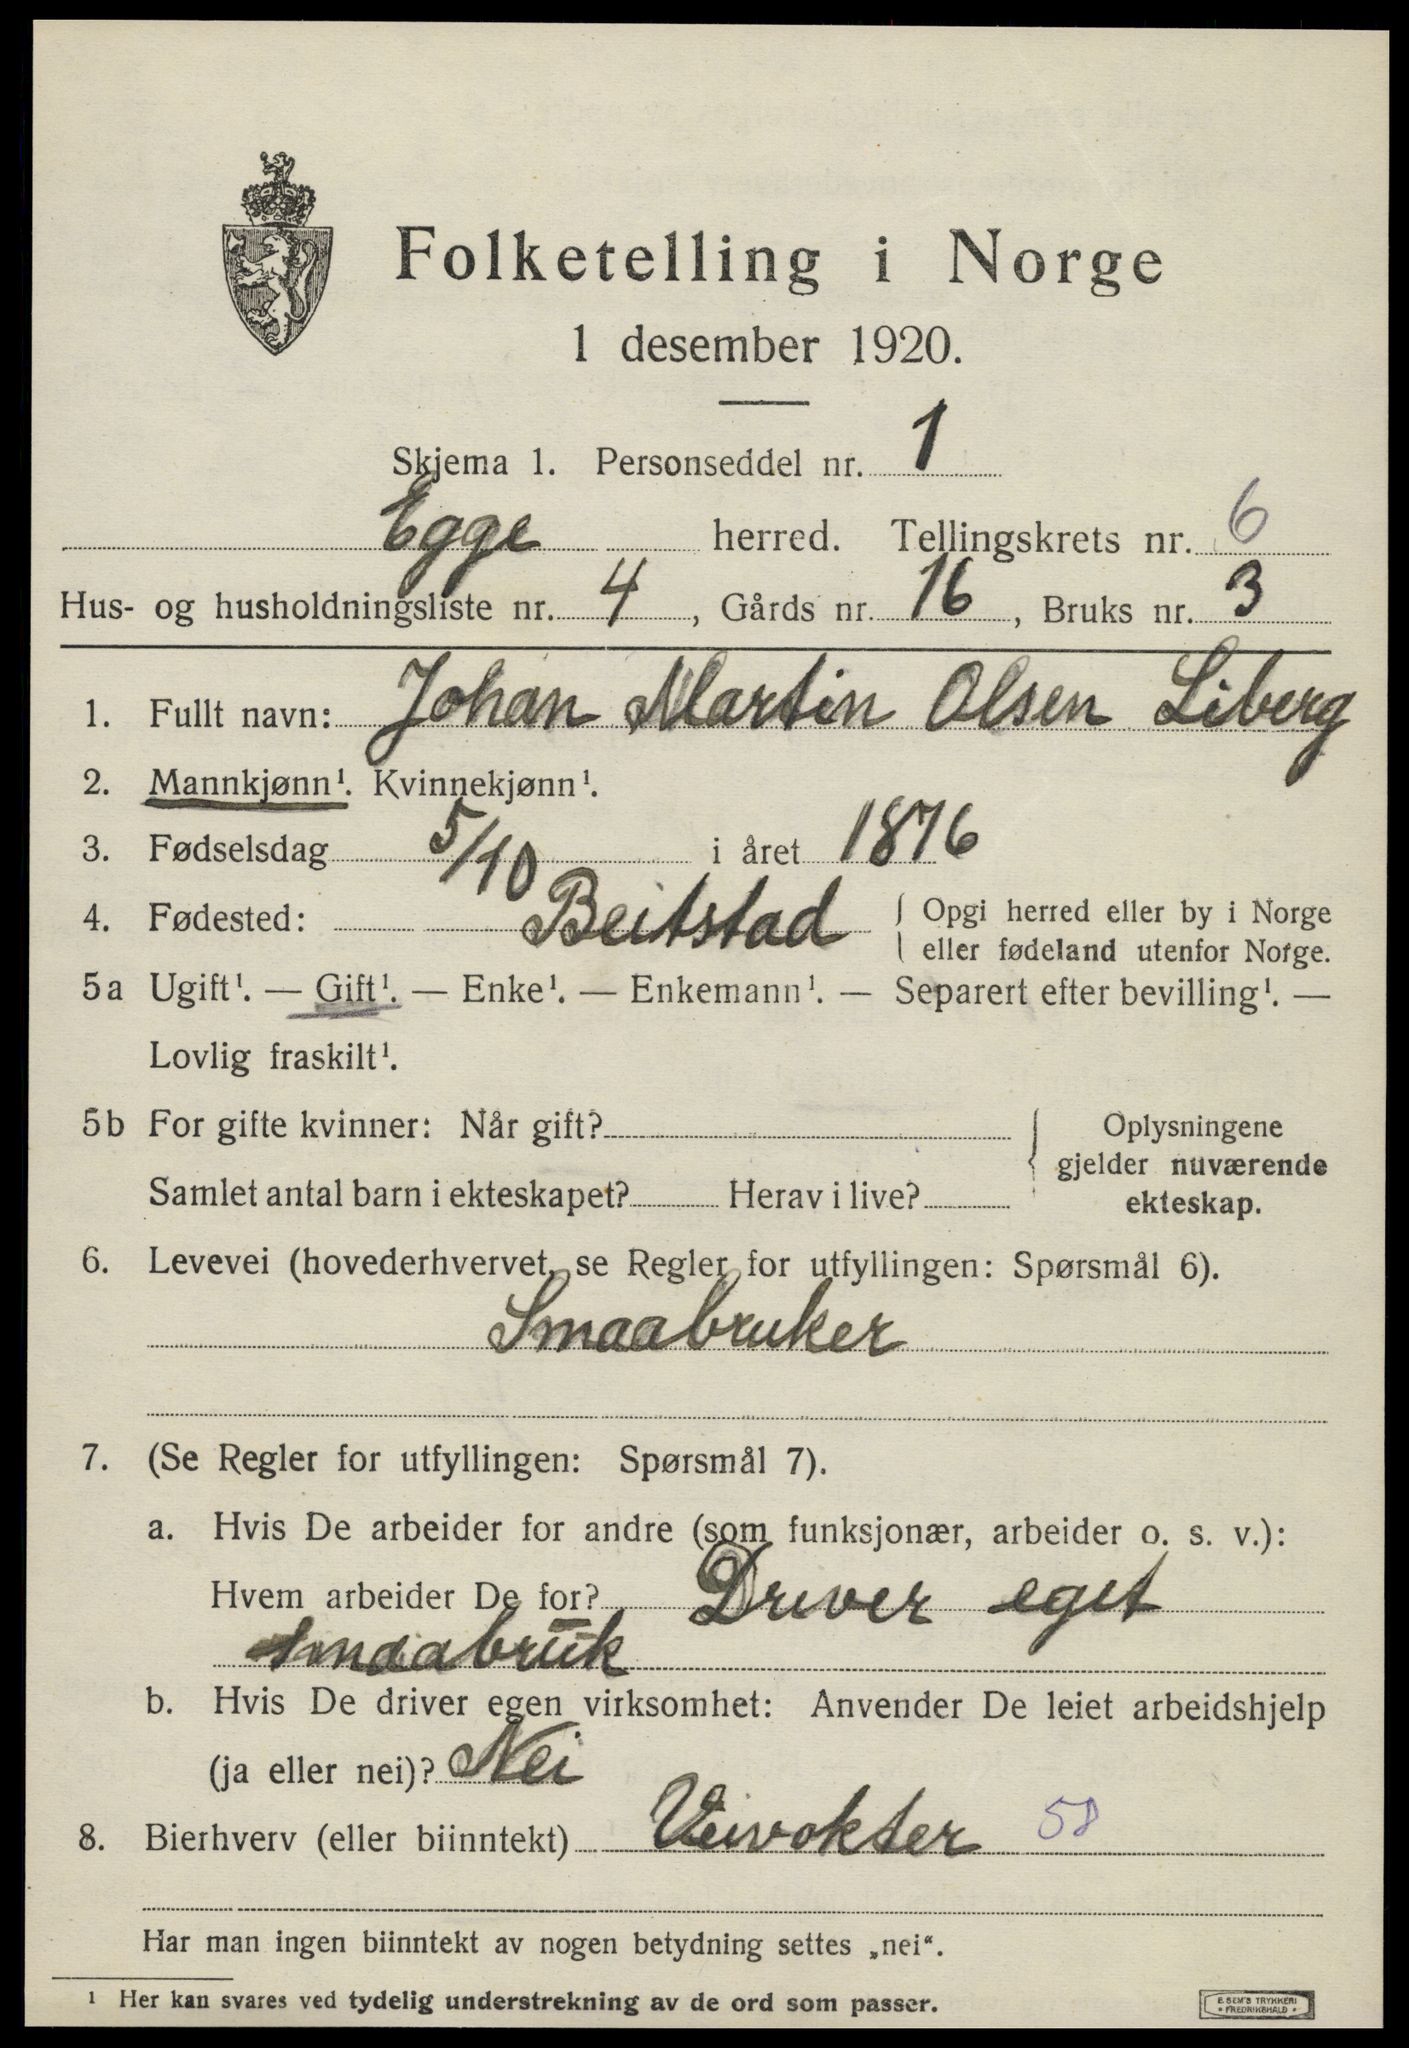 Folketelling i Norge
1 desember 1920.
Skjema 1. Personseddel nr. 1
Egge herred. Tellingskrets nr. 6
Hus- og husholdningsliste nr. 4, Gårds nr. 16, Bruks nr. 3
1. Fullt navn: Johan Martin Olsen Liberg
2. Mannkjønn¹. Kvinnekjønn¹.
3. Fødselsdag 5/10 i året 1876
4. Fødested: Beitstad { Opgi herred eller by i Norge
eller fødeland utenfor Norge.
5a Ugift¹. — Gift¹. — Enke¹. — Enkemann¹. — Separert efter bevilling¹. —
Lovlig fraskilt¹.
5b For gifte kvinner: Når gift?
Samlet antal barn i ekteskapet? Herav i live?
{ Oplysningene
gjelder nuværende
ekteskap.
6. Levevei (hovederhvervet, se Regler for utfyllingen: Spørsmål 6).
Smaabruker
7. (Se Regler for utfyllingen: Spørsmål 7).
a. Hvis De arbeider for andre (som funksjonær, arbeider o. s. v.):
Hvem arbeider De for? Driver eget
smaabruk
b. Hvis De driver egen virksomhet: Anvender De leiet arbeidshjelp
(ja eller nei)? Nei
8. Bierhverv (eller biinntekt) Veivokter 58
Har man ingen biinntekt av nogen betydning settes „nei“.
¹ Her kan svares ved tydelig understrekning av de ord som passer.
E. SEM'S TRYKKERI
• FREDRIKSHALD •